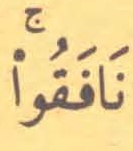 نَافَقُوا۟ۚ